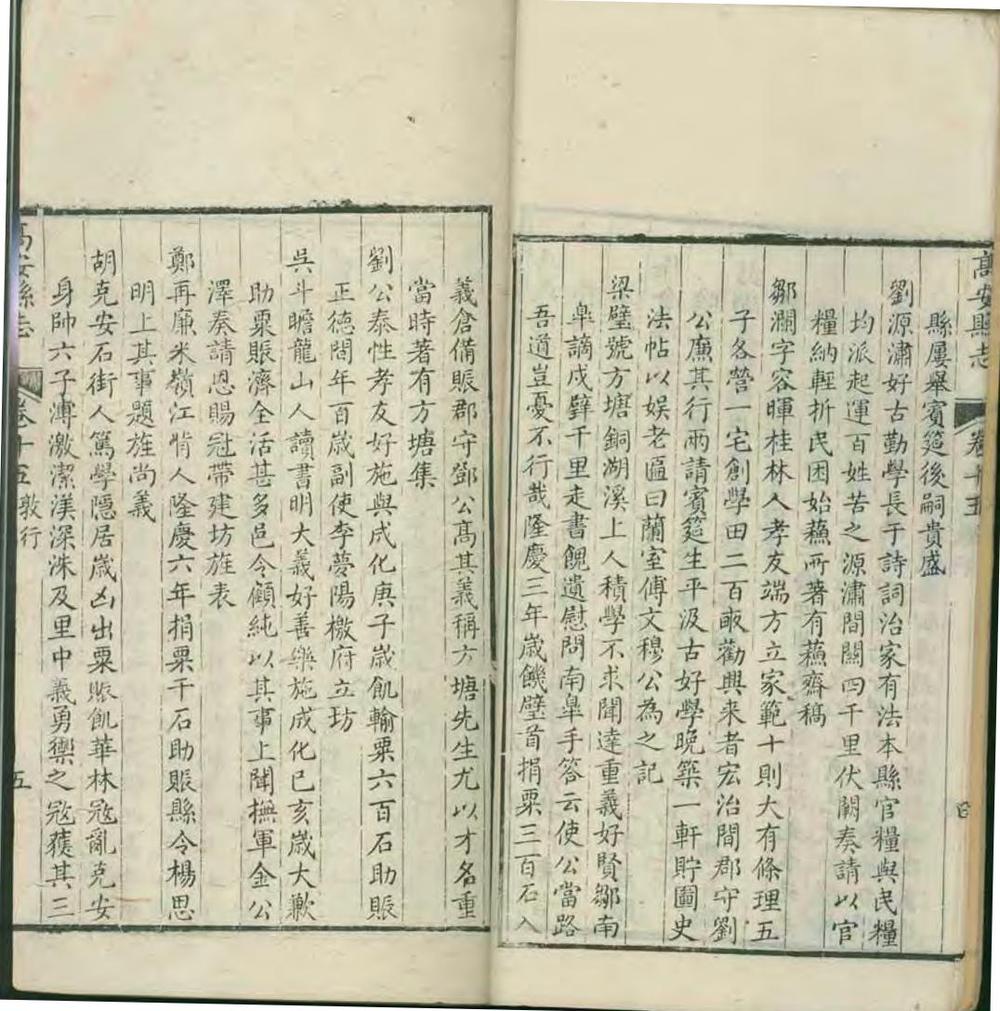 高安縣志 卷十五 四
縣屢舉賓筵後嗣貴盛
劉源潚好古勤學長于詩詞治家有法本縣官糧與民糧
均派起運百姓苦之源潚間關四千里伏闕奏請以官
糧納輕折民困始蘓所著有蘓齋稿
鄒瀾字容暉桂林人孝友端方立家範十則大有條理五
子各營一宅創學田二百畝勸興来者宏治間郡守劉
公廉其行兩請賓筵生平汲古好學晚築一軒貯圖史
法帖以娱老匾曰蘭室傅文穆公為之記
梁璧號方塘銅湖溪上人積學不求聞達重義好賢鄒南
臯謫戍壁千里走書餽遺慰問南臯手答云使公當路
吾道豈憂不行哉隆慶三年歲饑壁首捐粟三百石入
義倉備賑郡守鄧公高其義稱方塘先生尤以才名重
當時著有方塘集
劉公泰性孝友好施與成化庚子歲飢輸粟六百石助賑
正德間年百歲副使李夢陽檄府立坊
吳斗瞻龍山人讀書明大義好善樂施成化已亥歲大歉
助粟賬濟全活甚多邑令顧純以其事上聞撫軍金公
澤奏請恩賜冠帶建坊旌表
鄭再廉米嶺江背人隆慶六年捐粟千石助賑縣令楊思
明上其事題旌尚義
胡克安石街人篤學隱居歲凶出粟賑飢華林冦亂克安
身帥六子溥激潔渼深洙及里中義勇禦之冦獲其三
高安縣志 卷十五 敦行 五